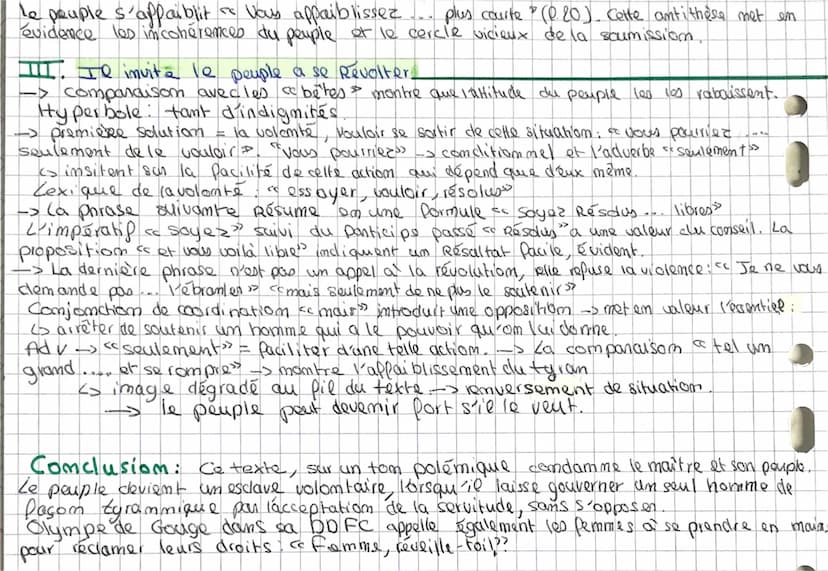 le peuple s'affaiblit « Vous affaiblissez ... plus courte " (l.20). Cette antithèse met en
évidence les incohérences du peuple et le cercle vicieux de la soumission.
III. Il invite le peuple a se Révolter
-> comparaison avec les « bêtes » montre que l'attitude du peuple les les rabaissent.
Hyperbole : tant d'indignités.
-> première solution = la volonté, vouloir se sortir de cette situation : « vous pourriez ....
seulement de le vouloir ». "Vous pourriez » -> conditionnel et l'adverbe « seulement »
↳ insitent sur la facilité de cette action qui dépend que d'eux même.
Lexique de la volonté : « essayer, vouloir, résolus »
-> La phrase suivante Résume en une formule « soyez Résolus ... libres »
L'impératif « soyez » suivi du participe passé « Résolus " a une valeur du conseil. La
proposition « et vous voilà libre » indiquent un Résaltat facile, évident.
-> La dernière phrase n'est pas un appel à la révolution, elle refuse la violence : « Je ne vous
demande pas ... l'ébranler » « mais seulement de ne plus le soutenir »
Conjonction de coordination « mais » introduit une opposition -> met en valeur l'essentiel :
↳ arrêter de soutenir un homme qui a le pouvoir qu'on lui donne.
Adv -> « seulement » = faciliter d'une telle action. -> La comparaison « tel un
grand ..... et se rompre » -> montre l'affaiblissement du tyran
↳ image dégradé au fil du texte -> renversement de situation.
-> le peuple peut devenir fort s'il le veut.
Conclusion : Ce texte, sur un ton polémique condamne le maître et son peuple.
Le peuple devient un esclave volontaire, lorsqu'il laisse gouverner un seul homme de
façon tyrannique par l'acceptation de la servitude, sans s'opposer.
Olympe de Gouge dans sa DDFC appelle également les femmes à se prendre en main,
pour réclamer leurs droits : « Femme, réveille-toi! ??